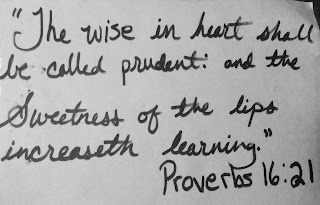 "The wise in heart shall
be called prudent: and the
Sweetness of the lips
increaseth learning."
Proverbs 16:21